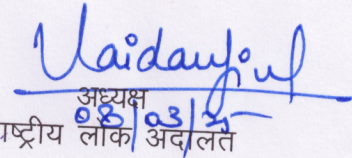 अध्यक्ष
08/03/25
राष्ट्रीय लोक अदालत